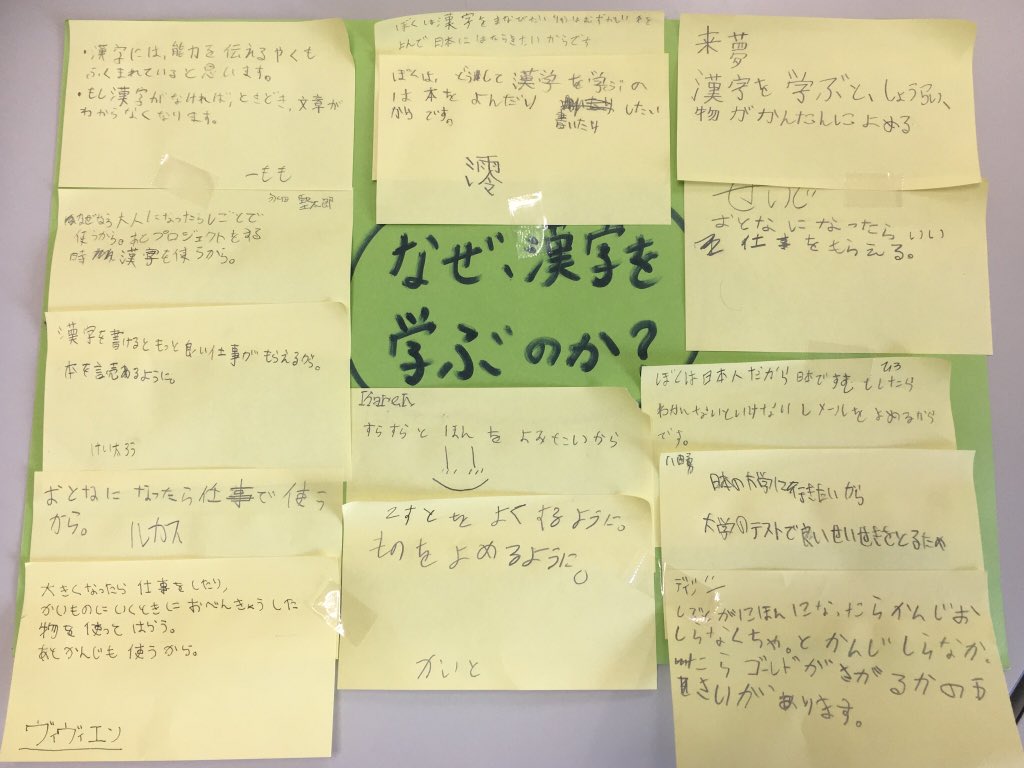 なぜ、漢字を
学ぶのか？
・漢字には、能力を伝えるやくも
ふくまれていると思います。
・もし漢字がなければ、ときどき、文章が
わからなくなります。
ーもも
堅太郎
なぜなら大人になったらしごとで
使うから。あとプロジェクトをする
時漢字を使うから。
漢字を書けるともっと良い仕事がもらえるから。
本を言売めるように。
けい太ろう
おとなになったら仕事で使う
から。
ルカス
大きくなったら仕事をしたり、
かいものにいくときにおべんきょうした
物を使ってはらう。
あとかんじも使うから。
ヴィヴィエン
ぼくは漢字をまなびたい
よんで日本にはたらきたいからです
ぼくは、どうして漢字を学ぶの
は本をよんだり したい
書いたり
からです。
澪
Karen
すらすらとほんをよみたいから
よくするように。
ものをよめるように。
かいと
来夢
漢字を学ぶと、しょうらい、
物がかんたんによめる
おとなになったらいい
仕事をもらえる。
ぼくは日本人だから日本ですむ
わかんないといけないしメールをよめるから
です。
日本の大学に行きたいから
大学のテストで良いせいせきをとるため
がにほんになったらかんじお
しらなくちゃ。とかんじしらなか
たらゴールドがさがるかのう
せいがあります。